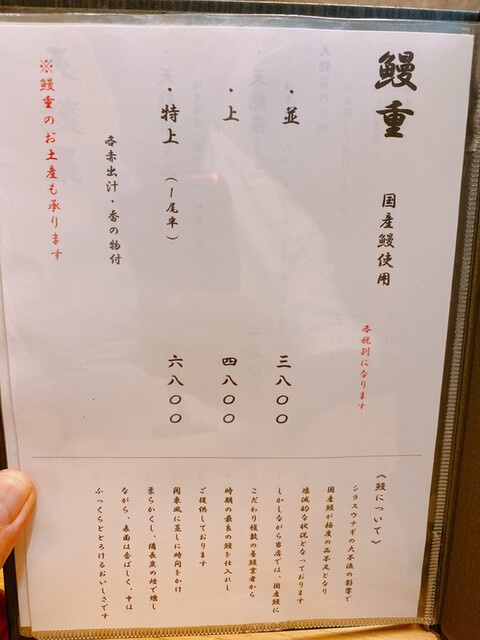 鰻重 国産鰻使用
各税別になります
・並 三八〇〇
・上 四八〇〇
・特上 (一尾半) 六八〇〇
各赤出汁・香の物付
※鰻重のお土産も承ります
《鰻について》
シラスウナギの大不漁の影響で
国産鰻が極度の品不足となり
壊滅的な状況となっております
しかしながら当店では、国産鰻に
こだわり複数の養鰻業者から
時期の最良の鰻を仕入れし
ご提供しております
関東風に蒸しに時間をかけ
柔らかくし、備長炭の煙で燻し
ながら、表面は香ばしく、中は
ふっくらとろけるおいしさです